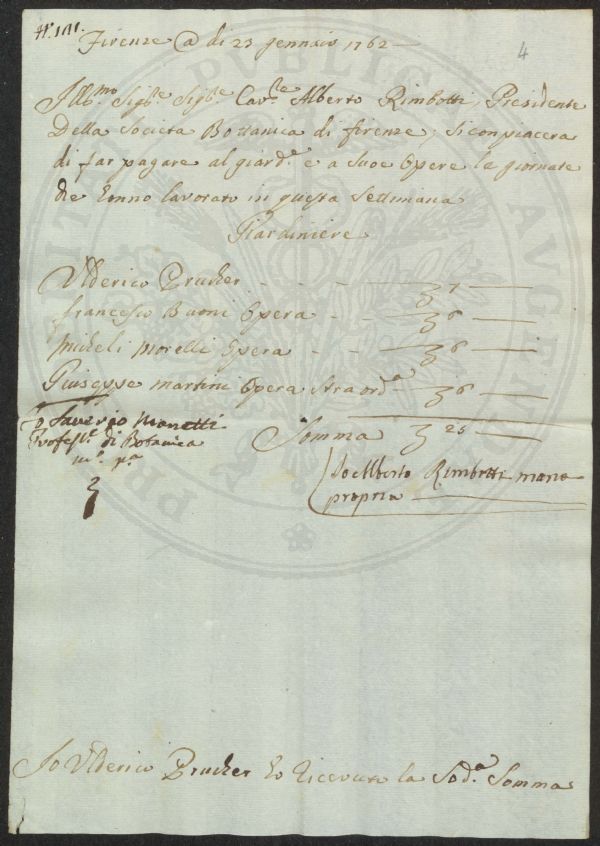 Firenze @ di 23 gennaio 1762
4
Ill.mo Sig.re Sig.re Cav.re Alberto Rimbotti, Presidente
Della Societa Bottanica di firenze, si conpiacera
di far pagare al giard.e e a Suoe Opere le giornate
che Enno lavorato in questa Settimana
Giardiniere
Ulderico Prucker 7
francesco Buoni Opera 6
Micheli Morelli Opera 6
Giuseppe martini Opera straord.a 6
Somma 25
Io Saverio Manetti
Profess.re di Botanica
m.o p.a
Io Alberto Rimbotti mano
propria
Io Ulderico Prucker Ho Riceuto la Sod.a Somma